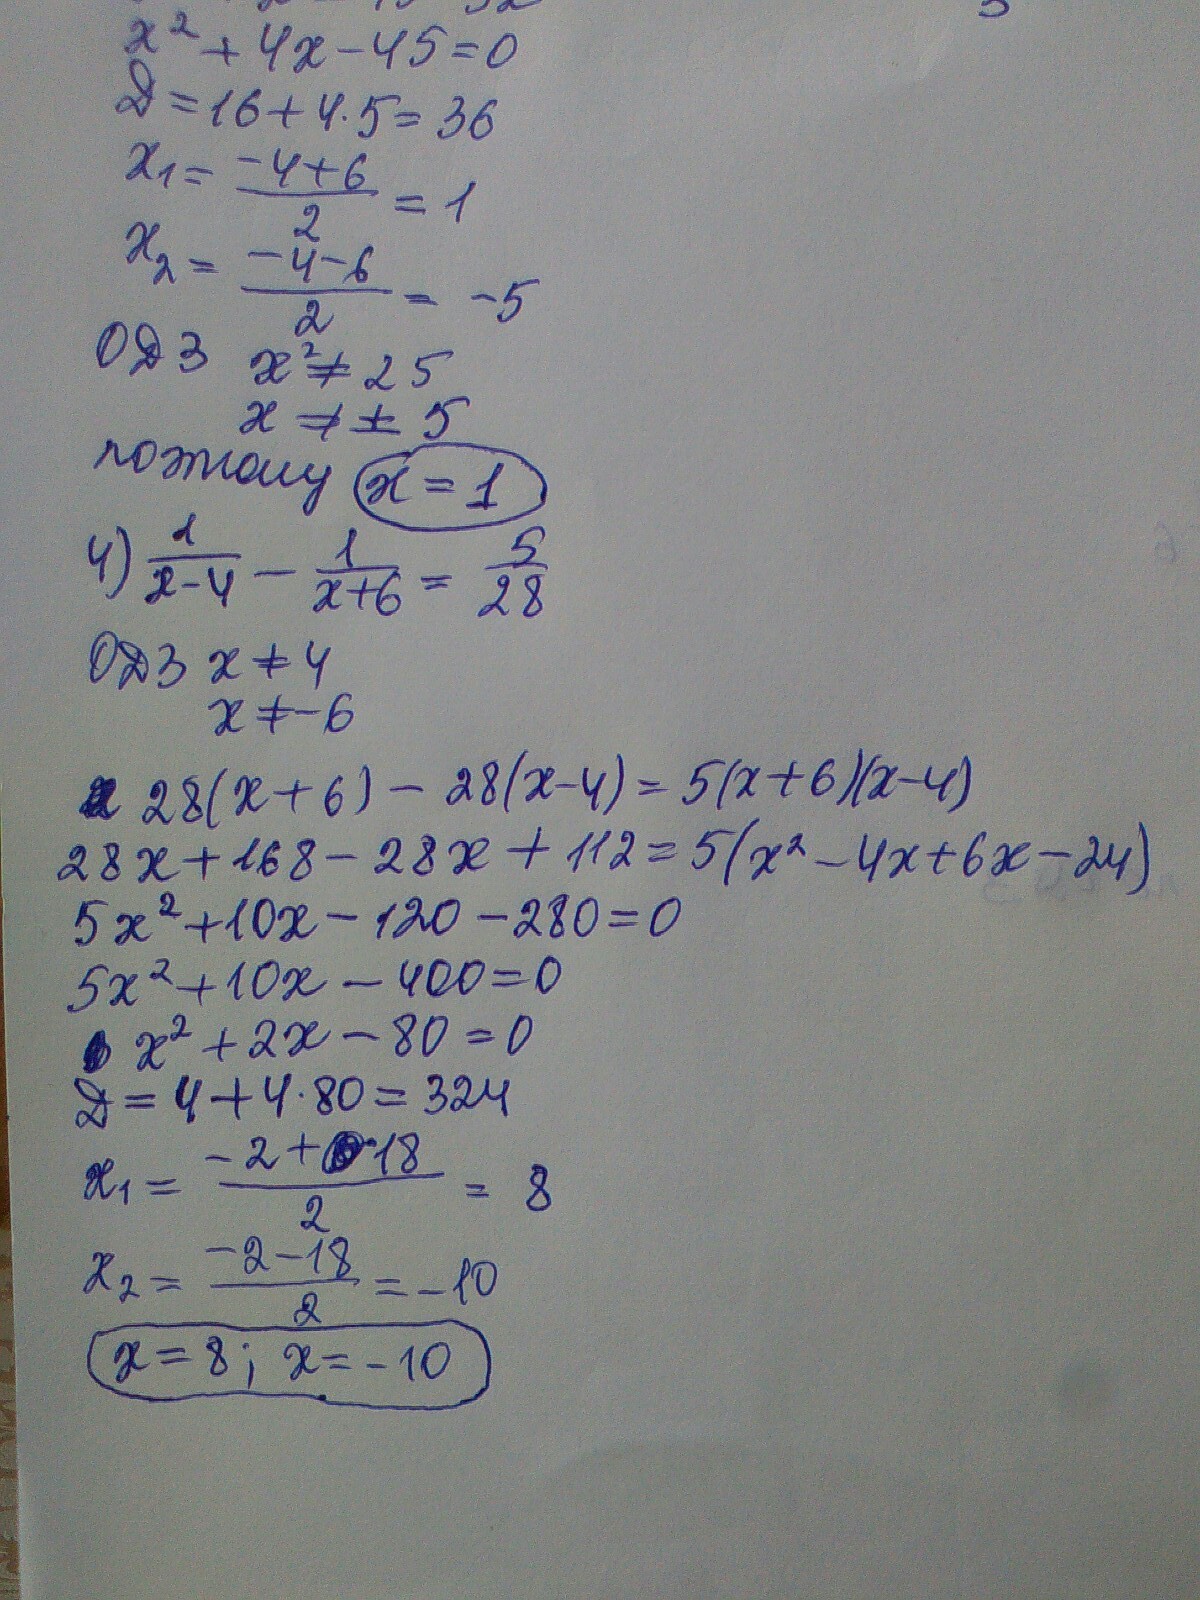 x² + 4x - 45 = 0
D = 16 + 4·5 = 36
x₁ = (-4+6)/2 = 1
x₂ = (-4-6)/2 = -5
ОДЗ x² ≠ 25
x ≠ ± 5
поэтому x = 1
4) 1/(x-4) - 1/(x+6) = 5/28
ОДЗ x ≠ 4
x ≠ -6
28(x+6) - 28(x-4) = 5(x+6)(x-4)
28x + 168 - 28x + 112 = 5(x² - 4x + 6x - 24)
5x² + 10x - 120 - 280 = 0
5x² + 10x - 400 = 0
x² + 2x - 80 = 0
D = 4 + 4·80 = 324
x₁ = (-2 + 18)/2 = 8
x₂ = (-2-18)/2 = -10
x = 8; x = -10